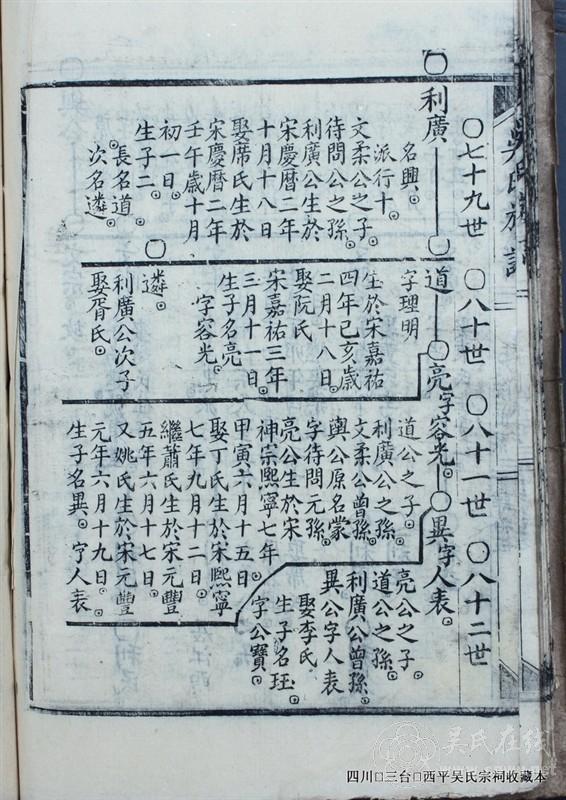 吳氏族譜
○七十九世 ○八十世 ○八十一世 ○八十二世
利廣 道 亮字容光。 異字人表。
名興。
派行十。
文柔公之子
待問公之孫
利廣公生於
宋慶曆二年
十月十八日
娶席氏生於
宋慶曆二年
壬午歲十月
初一日。
生子二。
長名道
次名遴。
字理明
生於宋嘉祐
四年己亥歲
二月十八日。
娶阮氏
宋嘉祐三年
三月十一日。
生子名亮
字容光。
遴。
利廣公次子
娶胥氏。
道公之子。
利廣公之孫
文柔公曾孫。
輿公原名蒙
字待問元孫。
亮公生於宋
神宗熙寧七年
甲寅六月十五日
娶丁氏生於宋熙寧
七年九月十二日。
繼蕭氏生於宋元豐
五年六月十七日。
又姚氏生於宋元豐
元年六月十九日。
生子名異。字人表。
亮公之子。
道公之孫。
利廣公曾孫。
異公字人表
娶李氏
生子名珏
字公寶。
吴氏在线
四川□三台□西平吴氏宗祠收藏本